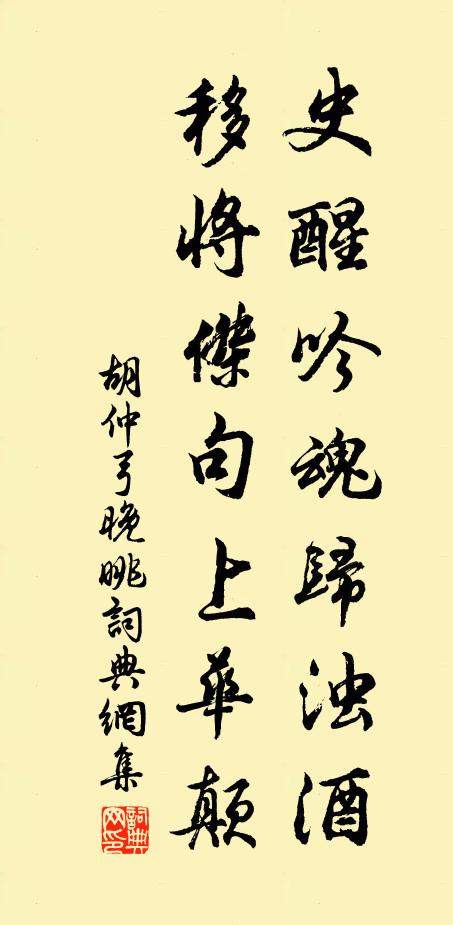 史醒吟魂歸浊酒
移將傑句上華顛
胡仲弓晚眺詞典網集
詞典網印